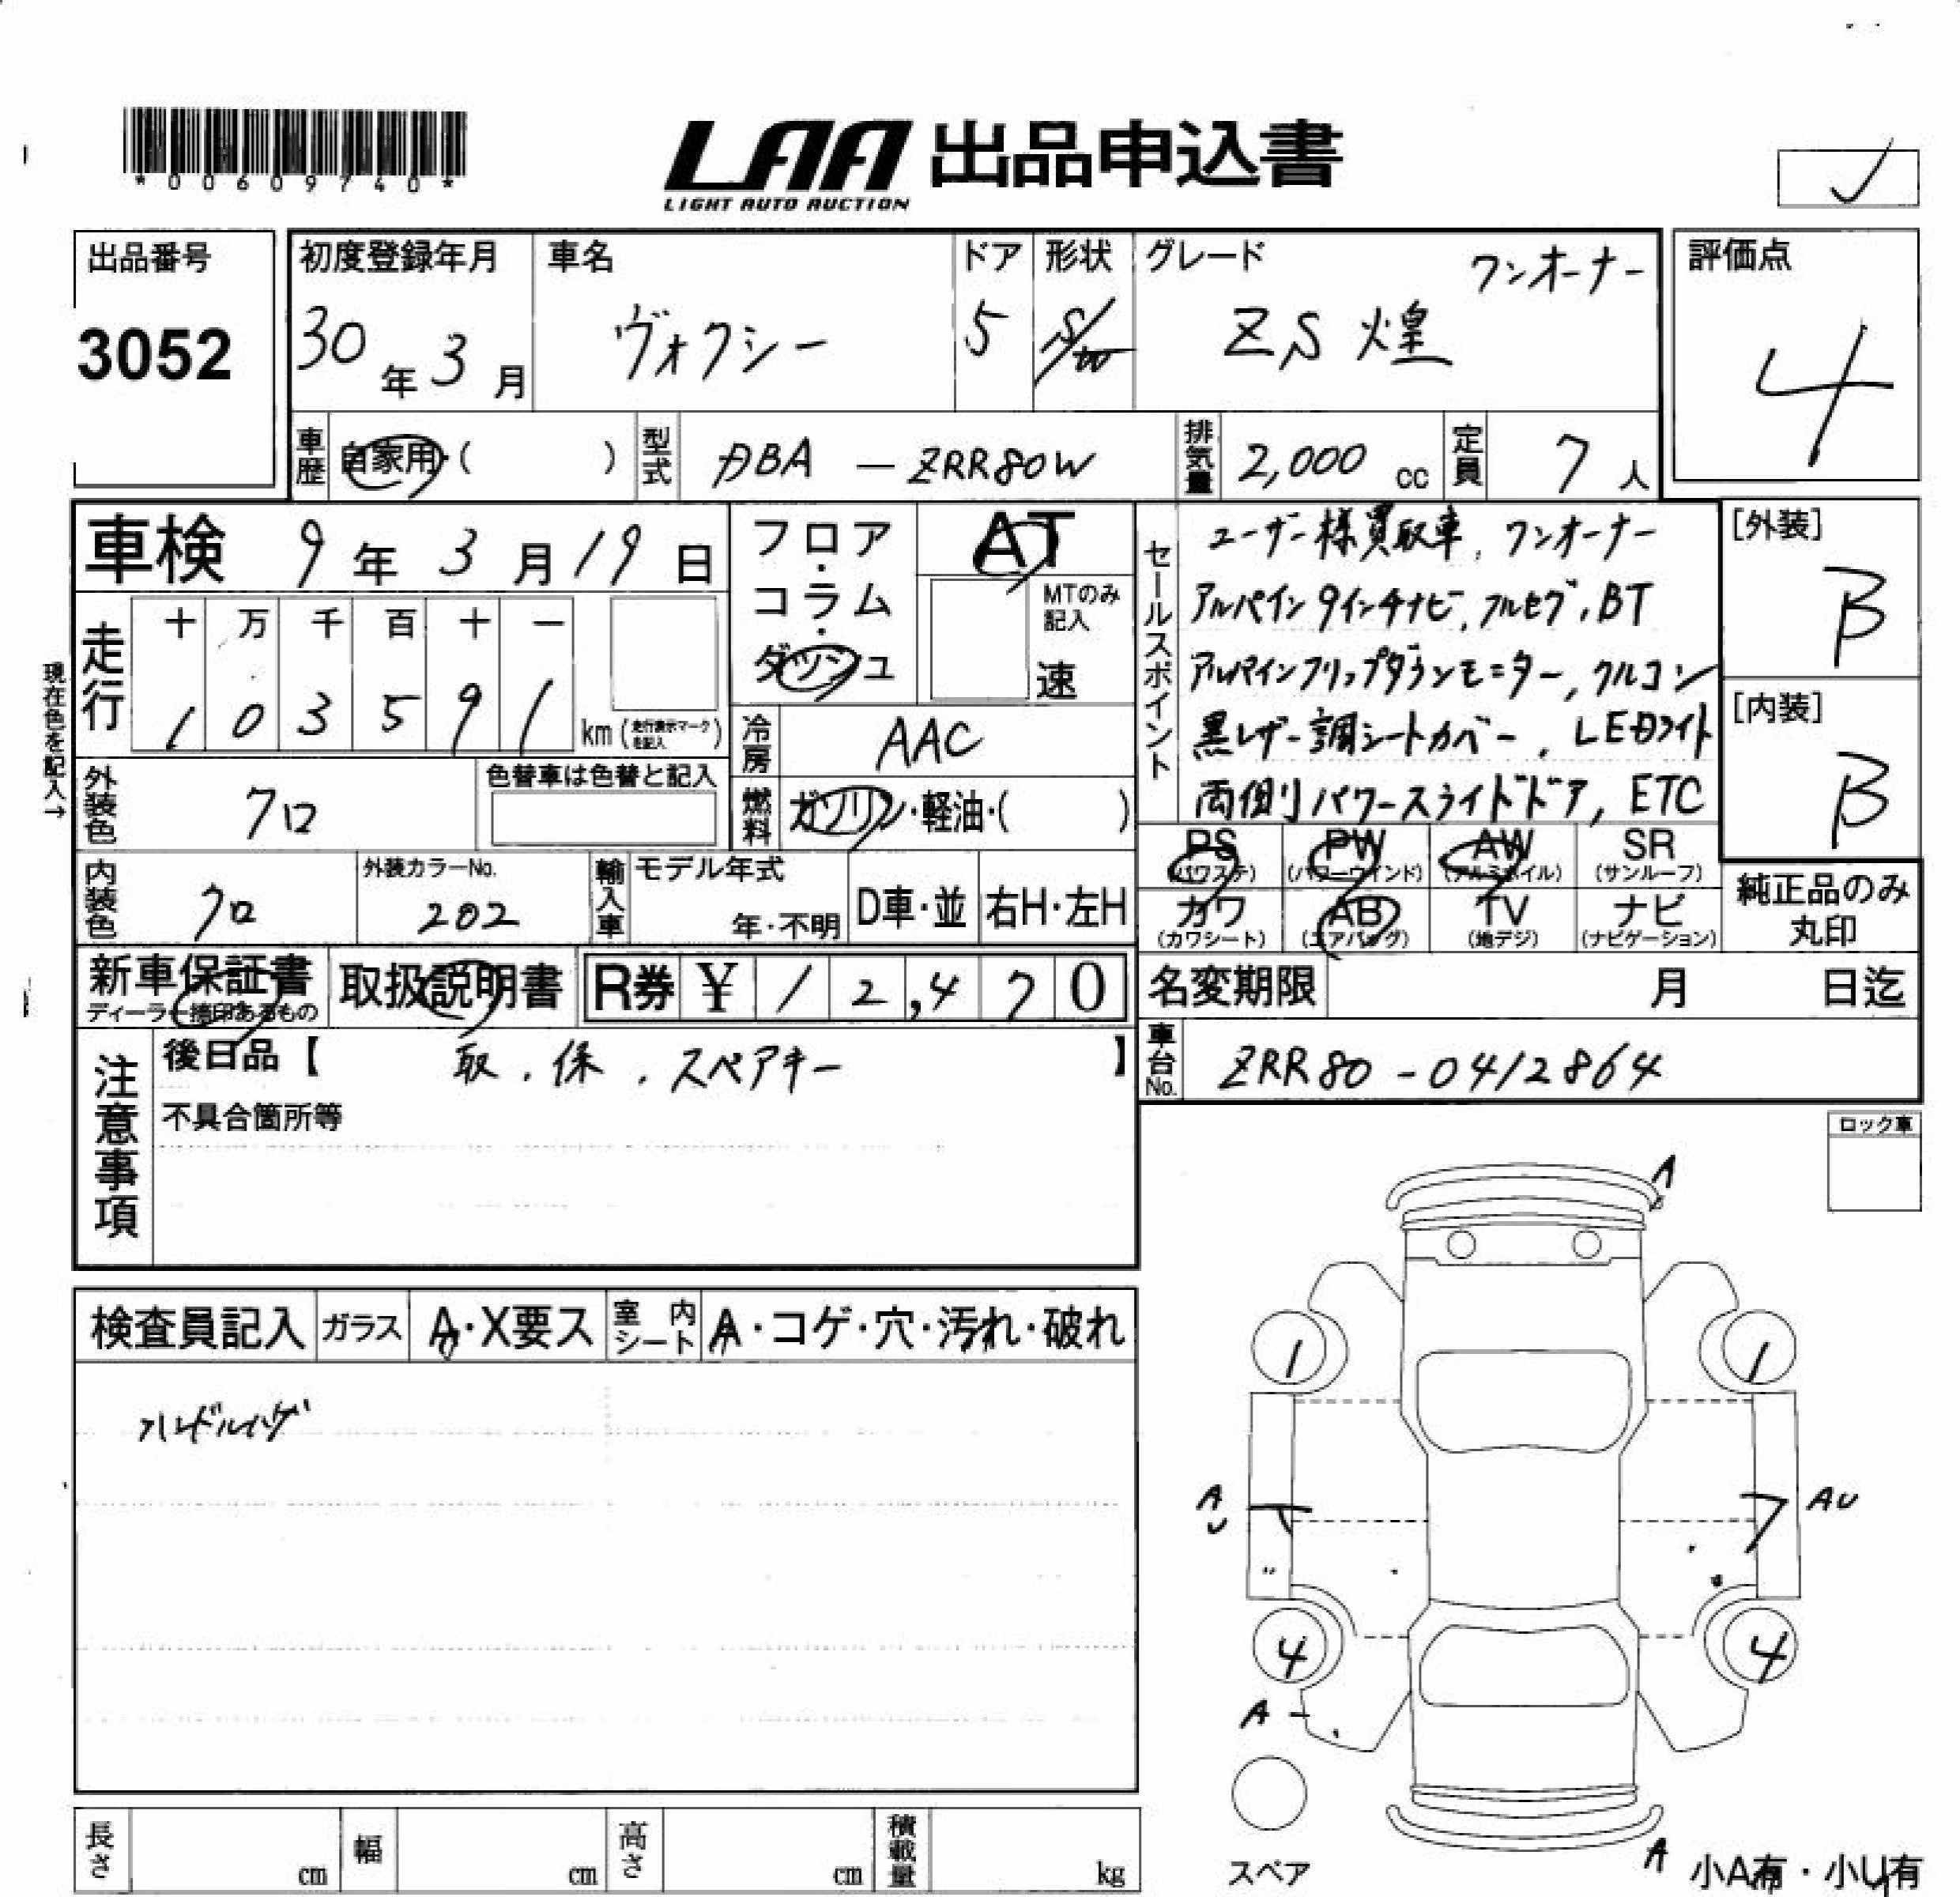 *00609740*
LAA 出品申込書
LIGHT AUTO AUCTION
出品番号
3052
初度登録年月
30年3月
車名
ヴォクシー
ドア
5
形状
S/W
グレード
ワンオーナー
ZS 煌
評価点
4
車歴
自家用・( )
型式
DBA — ZRR80W
排気量
2,000 cc
定員
7人
車検 9年3月19日
フロア・コラム・ダッシュ
AT
MTのみ記入
速
走行
十 万 千 百 十 一
1 0 3 5 9 1 km (走行表示マークを記入)
現在色を記入→
冷房
AAC
外装色
クロ
色替車は色替と記入
燃料
ガソリン・軽油・( )
内装色
クロ
外装カラーNo.
202
輸入車
モデル年式
年・不明
D車・並
右H・左H
セールスポイント
ユーザー様買取車, ワンオーナー
アルパイン9インチナビ, フルセグ, BT
アルパインフリップダウンモニター, クルコン
黒レザー調シートカバー, LEDライト
両側パワースライドドア, ETC
[外装]
B
[内装]
B
PS (パワステ)
PW (パワーウインド)
AW (アルミホイル)
SR (サンルーフ)
カワ (カワシート)
AB (エアバッグ)
TV (地デジ)
ナビ (ナビゲーション)
純正品のみ丸印
新車保証書
ディーラー捺印あるもの
取扱説明書
R券 ¥12,470
名変期限 月 日迄
車台No.
ZRR80-0412864
注意事項
後日品【 取. 保. スペアキー 】
不具合箇所等
ロック車
検査員記入
ガラス
A・X要ス
室内シート
A・コゲ・穴・汚れ・破れ
ハンドルハゲ
A
1
1
AU
AU
4
4
A
スペア
A
小A有・小U有
長さ cm
幅 cm
高さ cm
積載量 kg